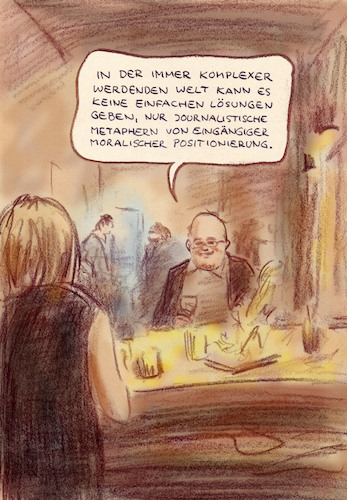 IN DER IMMER KOMPLEXER
WERDENDEN WELT KANN ES
KEINE EINFACHEN LÖSUNGEN
GEBEN, NUR JOURNALISTISCHE
METAPHERN VON EINGÄNGIGER
MORALISCHER POSITIONIERUNG.